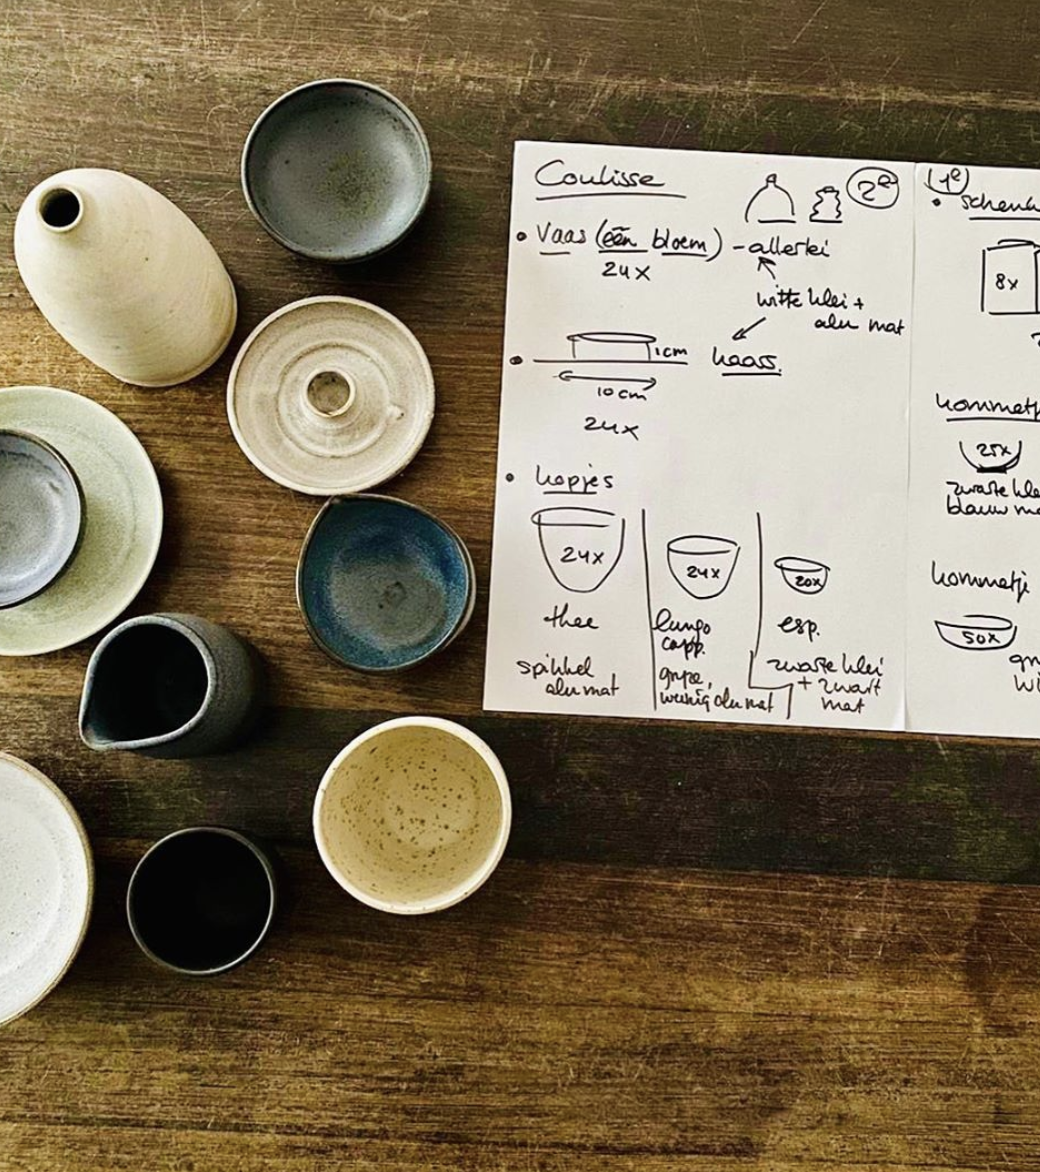 Coulisse
2e
• Vaas (één bloem) - allerlei
24x
witte klei +
alu mat
• 1cm kaars.
10 cm
24x
• kopjes
24x
thee
spikkel
alu mat
24x
lungo
capp.
grijze,
weinig alu mat
20x
esp.
zwarte klei
+ zwart
mat
1e
• schenk
8x
kommetj
25x
zwarte kle
blauw ma
kommetje
50x